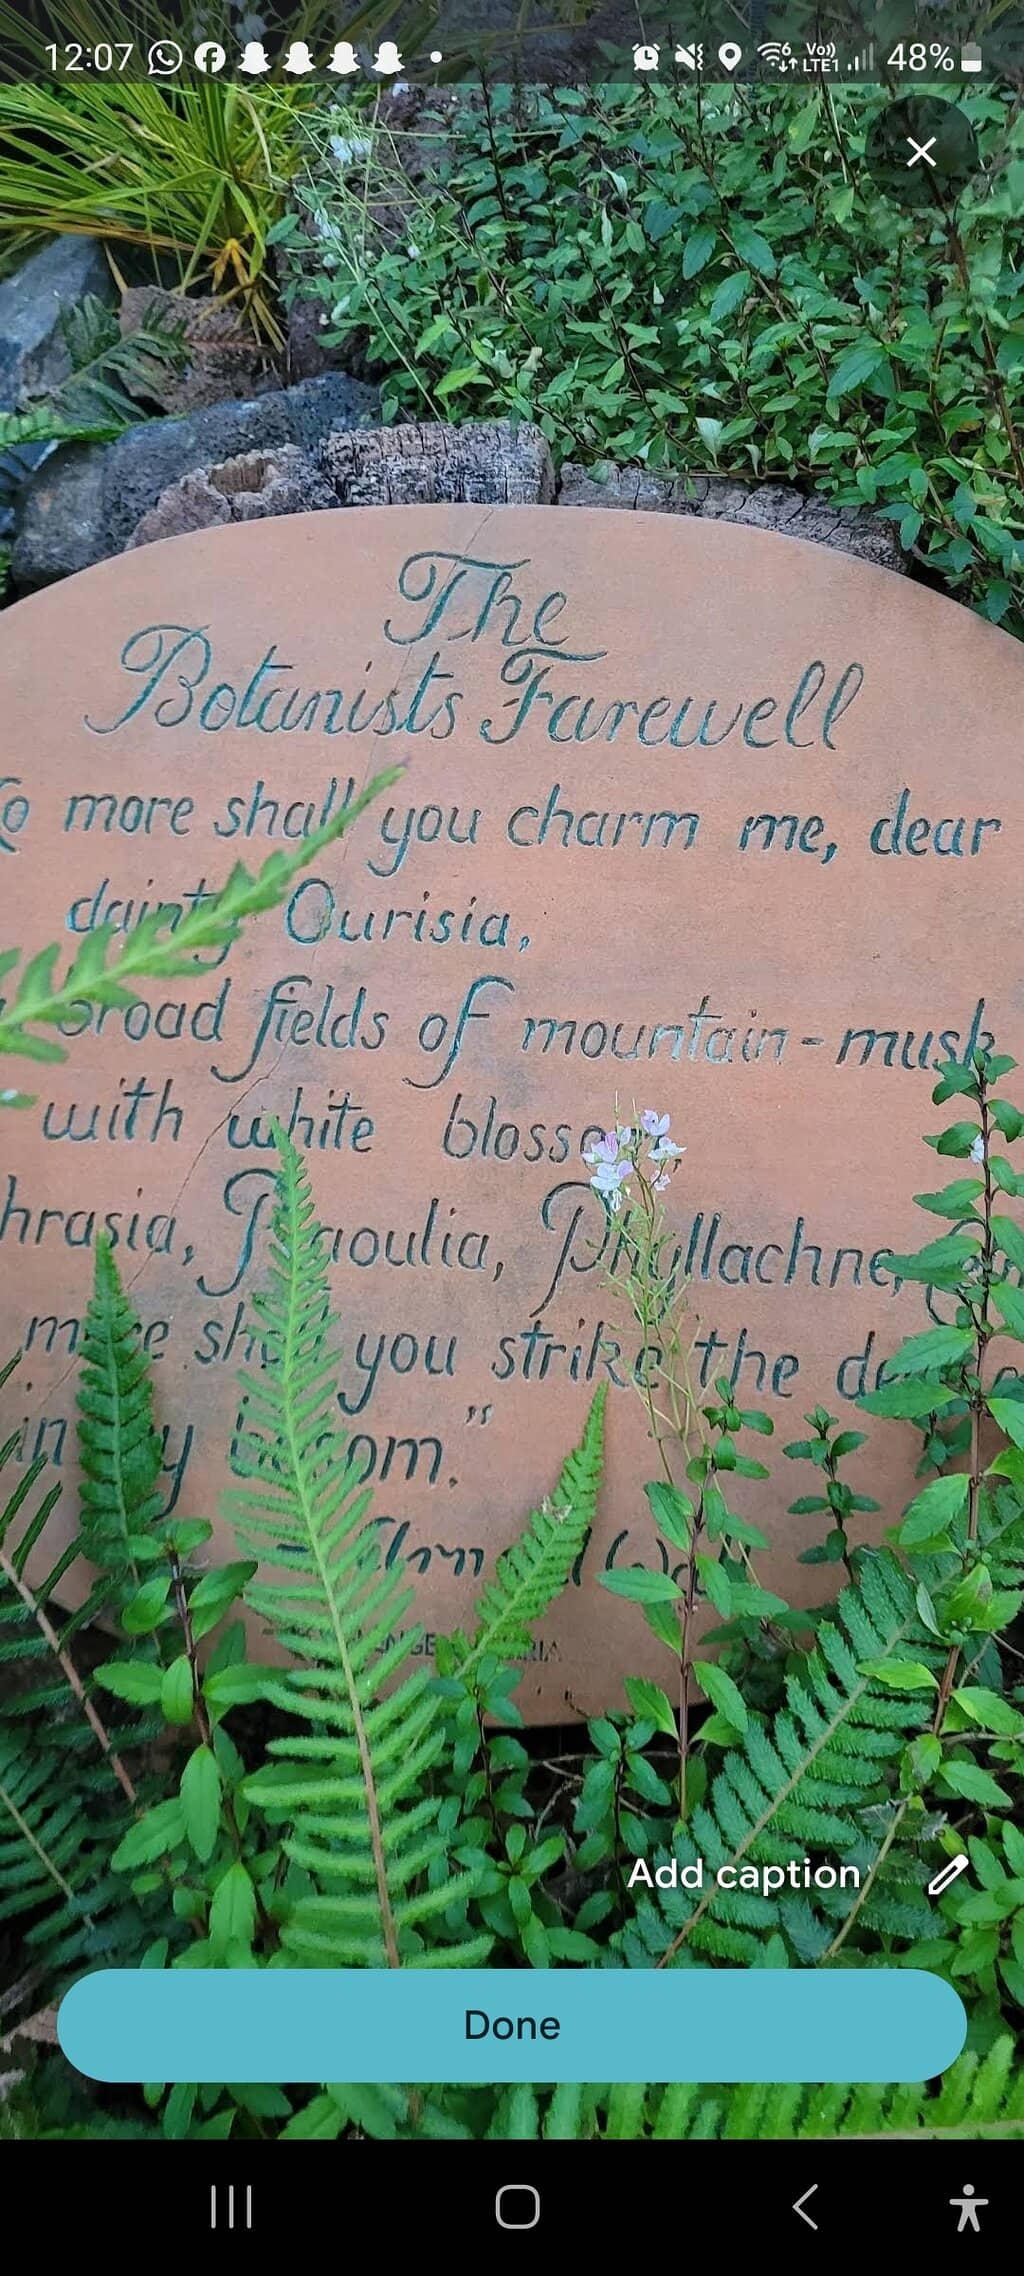 12:07
LTE1
48%
The
Botanists Farewell
more shall you charm me, dear
dainty Ourisia,
broad fields of mountain-musk
with white
hrasia, Raoulia, Phyllachne,
more shall you strike the
in bosom."
Add caption
Done